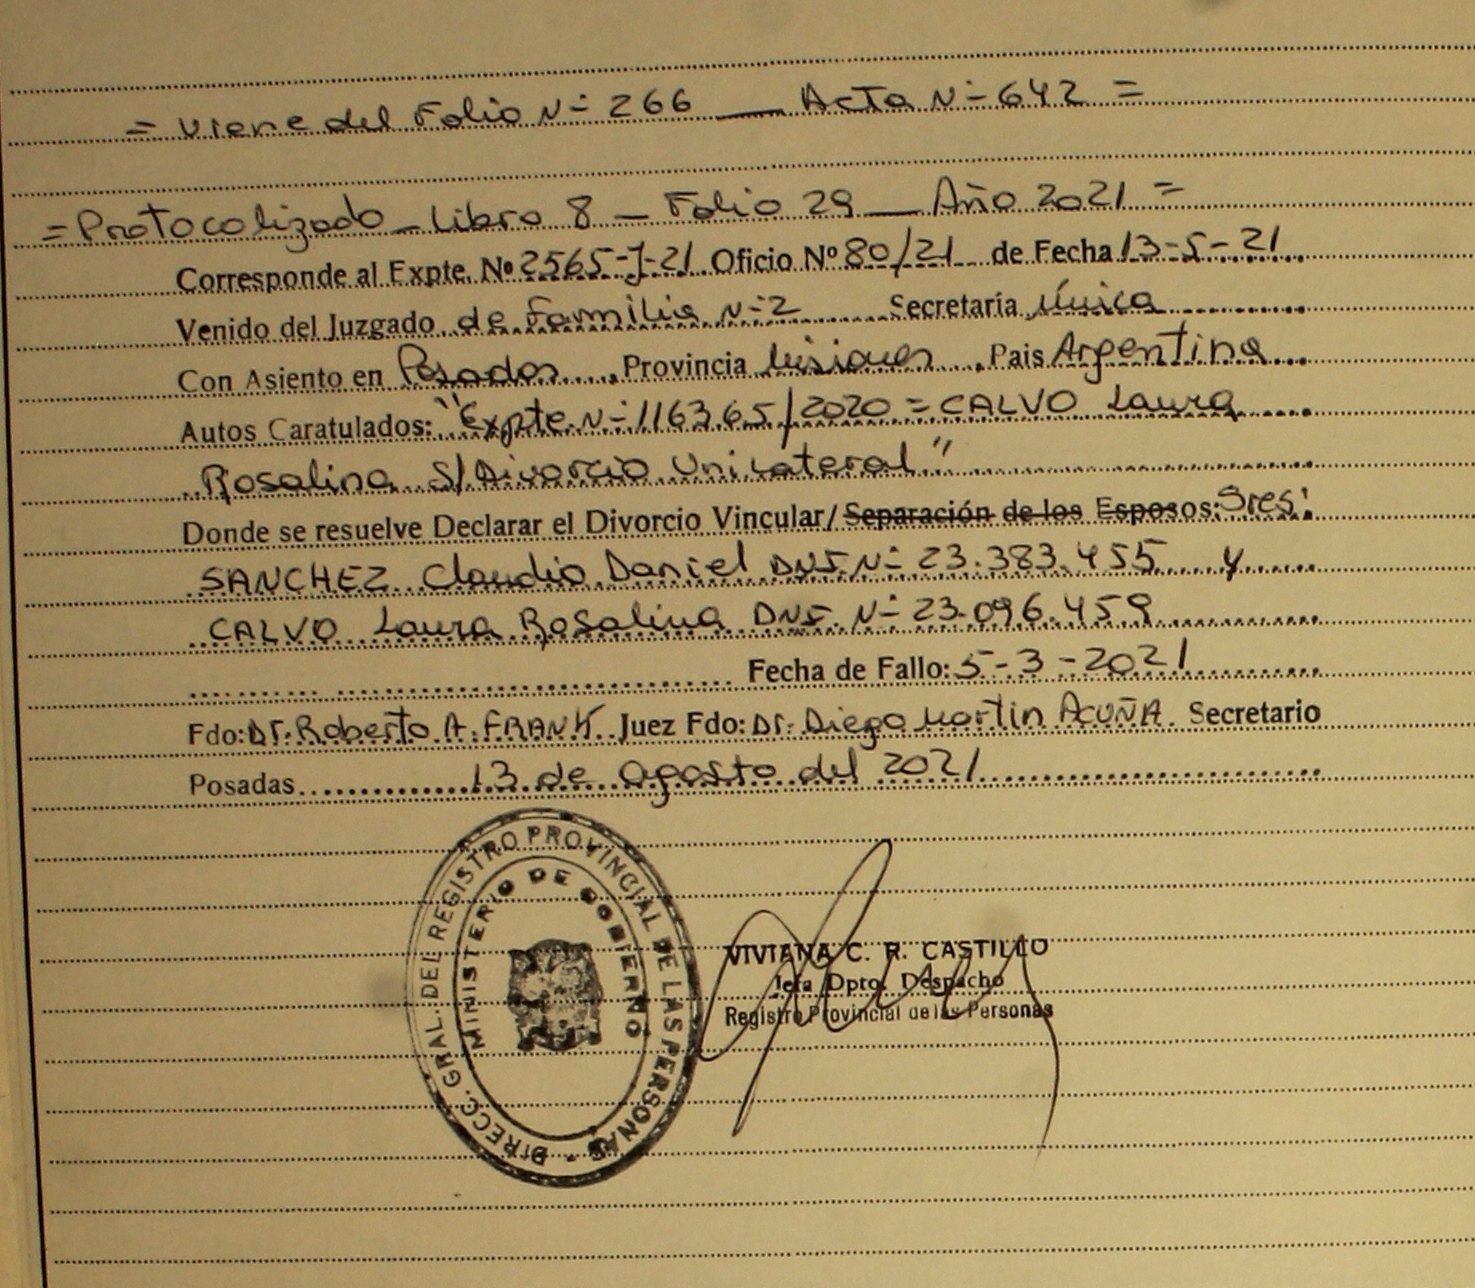 = Viene del Folio N- 266 — Acta N- 642 =
= Protocolizado - Libro 8 - Folio 29 - Año 2021 =
Corresponde al Expte. Nº 2565-J-21 Oficio Nº 80/21 de Fecha 13-5-21
Venido del Juzgado de Familia N-2 Secretaría Única
Con Asiento en Posadas, Provincia Misiones, Pais Argentina
Autos Caratulados: "Expte. N- 116365/2020 = CALVO Laura
Rosalina S/Divorcio Unilateral"
Donde se resuelve Declarar el Divorcio Vincular/ Separación de los Esposos: Sres:
SANCHEZ Claudio Daniel DNI. N- 23.383.455 y
CALVO Laura Rosalina DNI. N- 23.096.459
Fecha de Fallo: 5-3-2021
Fdo: Dr. Roberto A. FRANK Juez Fdo: Dr. Diego Martin ACUÑA. Secretario
Posadas 13 de agosto del 2021
DIRECC. GRAL. DEL REGISTRO PROVINCIAL DE LAS PERSONAS
MINISTERIO DE GOBIERNO
VIVIANA C. R. CASTILLO
Jefa Dpto. Despacho
Registro Provincial de las Personas